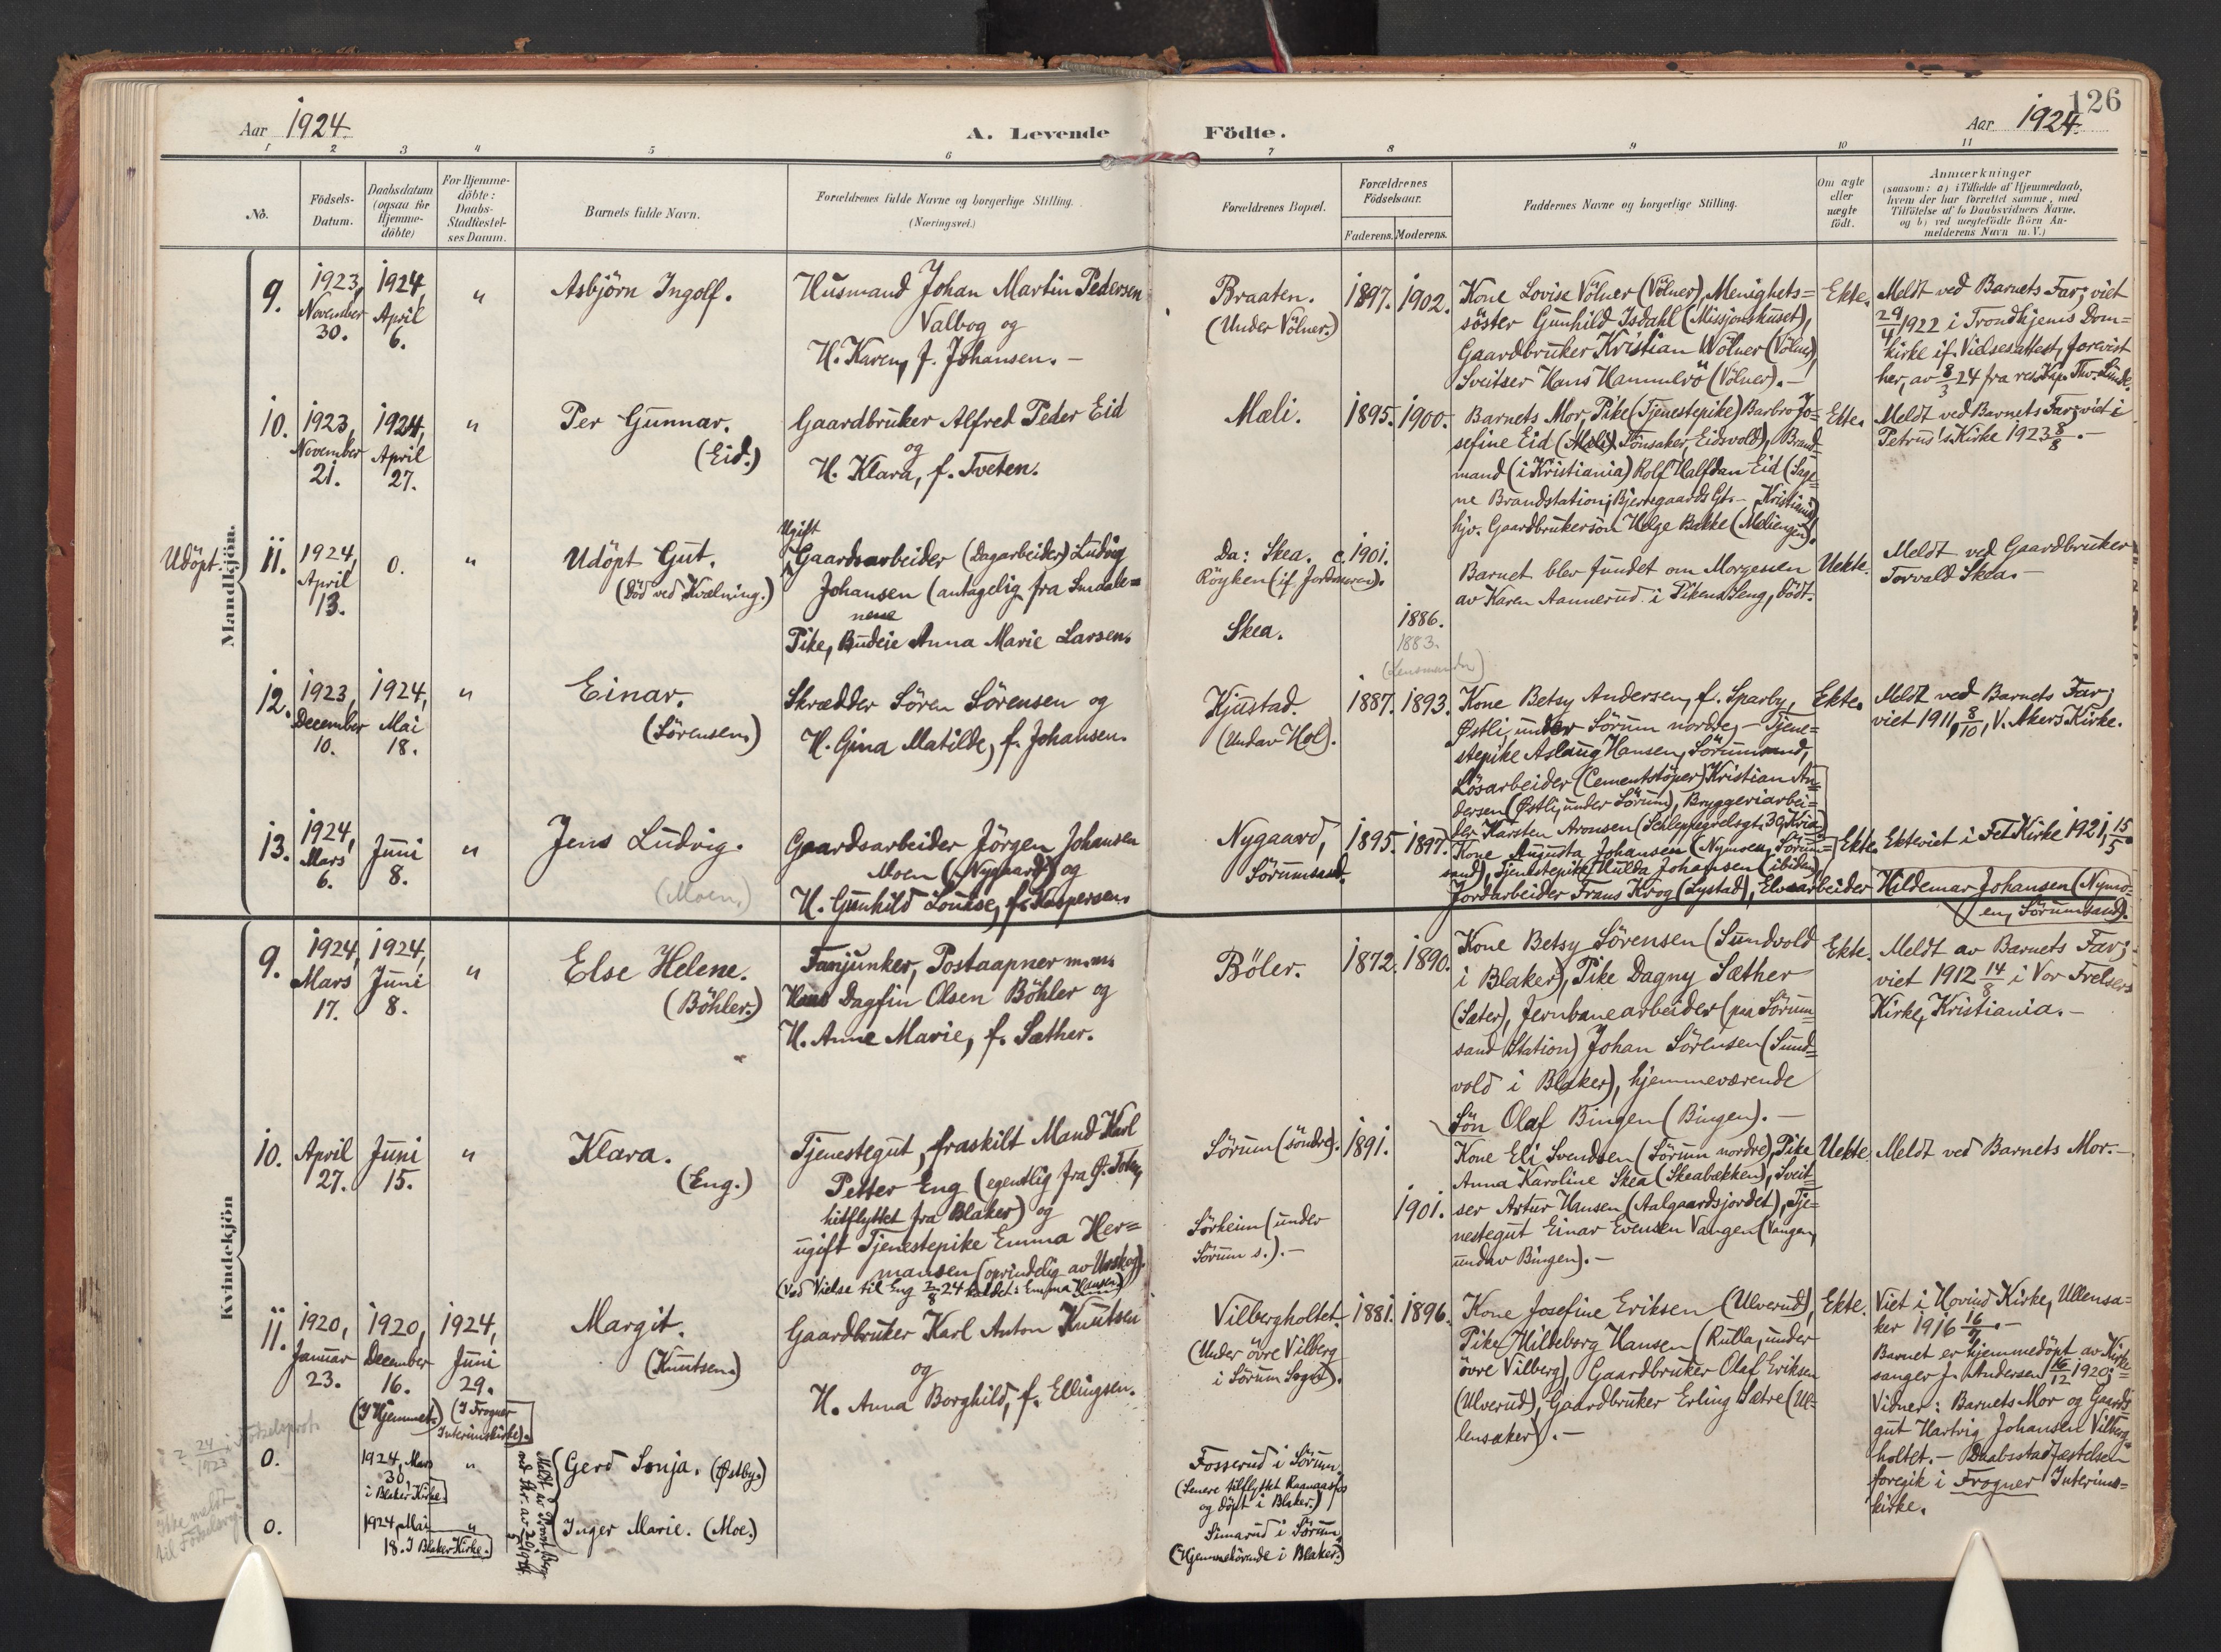 126
Aar 1924.
A. Levende Födte.
Aar 1924.
1 2 3 4 5 6 7 8 9 10 11
No.
Födsels-Datum.
Daabsdatum (ogsaa for Hjemme-döbte)
For Hjemme-döbte: Daabs-Stadfæstel-ses Datum.
Barnets fulde Navn.
Forældrenes fulde Navne og borgerlige Stilling.
(Næringsvei.)
Forældrenes Bopæl.
Forældrenes Födselsaar.
Faderens. Moderens.
Faddernes Navne og borgerlige Stilling.
Om ægte eller uægte födt.
Anmærkninger
(saasom: a) i Tilfælde af Hjemmedaab,
hvem der har forrettet samme, med
Tilföielse af to Daabsvidners Navne,
og b) ved uægtefödte Börn An-
melderens Navn m. V.)
Mandkjön.
9.
1923, November 30.
1924, April 6.
"
Asbjörn Ingolf.
Husmand Johan Martin Pedersen
Valbog og
H. Karen, f. Johansen. -
Braaten.
(Under Völner.)
1897. 1902.
Kone Lovise Völner (Völner), Menighets=
söster Gunhild Isdahl (Missjonshuset),
Gaardbruker Kristian Wölner (Völner),
Sveitser Hans Hammervö (Völner). -
Ekte.
Meldt ved Barnets Far; viet
29/4 1922 i Trondhjems Dom=
kirke if. Vielsesattest, forevist
her, av 8/3 24 fra res. Kap. Thv. Lunde.
10.
1923, November 21.
1924, April 27.
"
Per Gunnar.
(Eid.)
Gaardbruker Alfred Peder Eid
og
H. Klara, f. Tveten.
Mæli.
1895. 1900.
Barnets Mor, Pike (Tjenestepike) Barbro Jo=
sefine Eid (Tönsaker, Eidsvold), Brand=
mand (i Kristiania) Rolf Halfdan Eid (Sage=
ne Brandstation; Bjertegaards Gt. - Kristiania)
hjv. Gaardbrukersön Helge Bakke (Meliengen).
Ekte.
Meldt ved Barnets Far; viet i
Petrus's Kirke 1923 8/8. -
Udöpt.
11.
1924, April 13.
0.
"
Udöpt Gut.
(Död ved Kvælning.)
Ugift
Gaardsarbeider (Dagarbeider) Ludvig
Johansen (antagelig fra Smaale=
nene
Pike, Budeie Anna Marie Larsen.
Da: Skea.
Röyken (if. Jordmoren).
Skea.
c. 1901.
1886.
1883.
(Lensmanden)
Barnet blev fundet om Morgenen
av Karen Aannerud i Pikens Seng, dödt.
Uekte.
Meldt ved Gaardbruker
Torvald Skea. -
12.
1923, December 10.
1924, Mai 18.
"
Einar.
(Sörensen.)
Skrædder Sören Sörensen og
H. Gina Matilde, f. Johansen.
Kjustad.
(Undav Hol).
1887. 1893.
Kone Betsy Andersen, f. Sparby,
Østli, under Sörum nordre, - Tjene=
stepike Aslaug Hansen, Sörumsand,
Lösarbeider (Cementstöper) Kristian An=
dersen (Østli, under Sörum), Bryggeriarbei=
der Karsten Aronsen (Schleppegrelsgt. 39, Kria).
Ekte.
Meldt ved Barnets Far;
viet 1911, 8/10, V. Akers Kirke.
13.
1924, Mars 6.
Juni 8.
"
Jens Ludvig.
(Moen.)
Gaardsarbeider Jörgen Johansen
Moen (Nygaard) og
H. Gunhild Louise, f. Kaspersen.
Nygaard,
Sörumsand.
1895. 1897.
Kone Augusta Johansen (Nymoen, Sörum=
sand), Tjenestepike Hulda Johansen (ibidem),
Jordarbeider Frans Krog (Lystad), Elvearbeider Hildemar Johansen (Nymo=
en, Sörumsand).
Ekte.
Ekteviet i Fet Kirke 1921, 15/5.
Kvindekjön
9.
1924, Mars 17.
1924, Juni 8.
"
Else Helene.
(Böhler.)
Fanjunker, Postaapner m.m.
Hans Dagfin Olsen Böhler og
H. Anne Marie, f. Sæther.
Böler.
1872. 1890.
Kone Betsy Sörensen (Sundvold
i Blaker), Pike Dagny Sæther
(Sæter), Jernbanearbeider (paa Sörum=
sand Station) Johan Sörensen (Sund=
vold i Blaker), hjemmeværende
Sön Olaf Bingen (Bingen). -
Ekte.
Meldt av Barnets Far;
viet 1912 14/8 i Vor Frelsers
Kirke, Kristiania. -
10.
April 27.
Juni 15.
"
Klara.
(Eng.)
Tjenestegut, fraskilt Mand Karl
Petter Eng (egentlig fra Ö. Toten,
hitflyttet fra Blaker) og
ugift Tjenestepike Emma Her=
mansen (oprindelig av Urskog).
(Ved Vielse til Eng 2/8 24 kaldet: Emma Hansen.)
Sörum (söndre).
Sörheim (under
Sörum s.). -
1891.
1901.
Kone Eli Svendsen (Sörum nordre), Pike
Anna Karoline Skea (Skeabækken), Sveit=
ser Artur Hansen (Aalgaardsjordet), Tje=
nestegut Einar Evensen Vangen (Vangen,
undav Bingen). -
Uekte.
Meldt ved Barnets Mor. -
11.
1920, Januar 23.
1920, December 16.
(I Hjemmet.)
1924, Juni 29.
(I Frogner Interimskirke).
Margit.
(Knutsen.)
Gaardbruker Karl Anton Knutsen
og
H. Anna Borghild, f. Ellingsen.
Vilbergholtet.
(Under övre Vilberg
i Sörum Sogn).
1881. 1896.
Kone Josefine Eriksen (Ulverud),
Pike Hildeborg Hansen (Rulla, under
övre Vilberg), Gaardbruker Olaf Eriksen
(Ulverud), Gaardbruker Erling Sætre (Ul=
lensaker). -
Ekte.
Viet i Hovind Kirke, Ullensa=
ker 1916 16/7. -
Barnet er hjemmedöpt av Kirke=
sanger J. Andersen 16/12 1920;
Vidner: Barnets Mor og Gaards=
gut Hartvig Johansen Vilberg=
holtet. - Daabsstadfæstelsen
foregik i Frogner Interims=
kirke.
24/2 1923 i Födselsprot.
0.
1924, Mars 30,
i Blaker Kirke.
"
Gerd Sonja. (Østby.)
Fosserud i Sörum.
(Senere tilflyttet Raanaasfos
og döpt i Blaker.)
Ikke meldt
til Födselsreg.
0.
1924, Mai 18. I Blaker Kirke.
"
Inger Marie. (Moe.)
Simarud i Sörum.
(Hjemmehörende i Blaker.)